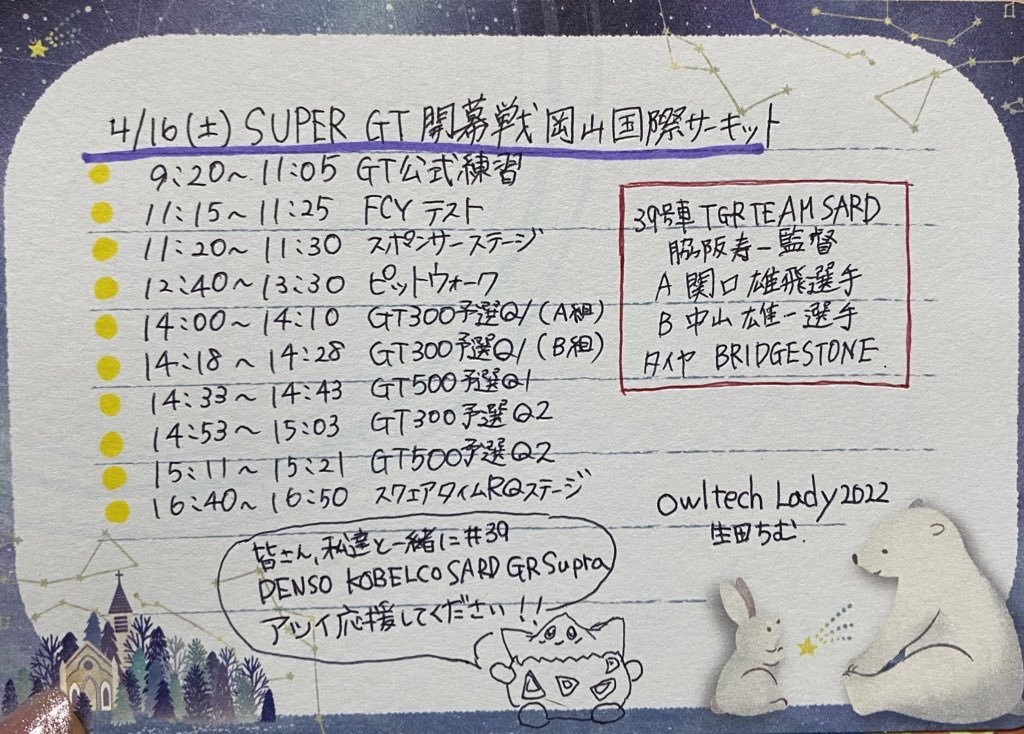 4/16(土) SUPER GT 開幕戦 岡山国際サーキット
9:20〜11:05 GT公式練習
11:15〜11:25 FCYテスト
11:20〜11:30 スポンサーステージ
12:40〜13:30 ピットウォーク
14:00〜14:10 GT300予選Q1(A組)
14:18〜14:28 GT300予選Q1(B組)
14:33〜14:43 GT500予選Q1
14:53〜15:03 GT300予選Q2
15:11〜15:21 GT500予選Q2
16:40〜16:50 スクエアタイムRQステージ
39号車 TGR TEAM SARD
脇阪寿一監督
A 関口雄飛選手
B 中山雄一選手
タイヤ BRIDGESTONE.
Owltech Lady 2022
生田ちむ.
皆さん,私達と一緒に#39
DENSO KOBELCO SARD GR Supra
アツイ応援してください!!